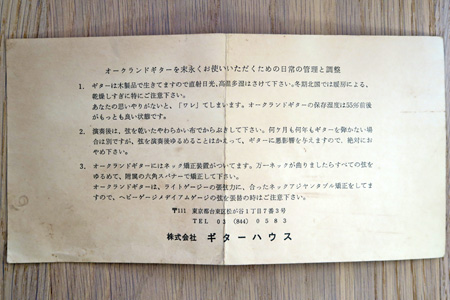 オークランドギターを末永くお使いいただくための日常の管理と調整
1. ギターは木製品で生きてますので直射日光、高温多湿はさけて下さい。冬期北国では暖房による、
乾燥しすぎに特にご注意下さい。
あなたの思いやりがないと、「ワレ」てしまいます。オークランドギターの保存湿度は55%前後
がもっとも良い状態です。
2. 演奏後は、弦を乾いたやわらかい布でからぶきして下さい。何ケ月も何年もギターを弾かない場
合は別ですが、弦を演奏後ゆるめることはかえって、ギターに悪影響を与えますので、絶対にお
やめ下さい。
3. オークランドギターにはネック矯正装置がついてます。万一ネックが曲りましたらすべての弦を
ゆるめて、附属の六角スパナーで矯正して下さい。
オークランドギターは、ライトゲージの張弦力に、合ったネックアジャンタブル矯正をしてま
すので、ヘビーゲージメデイアムゲージの弦を張替の時はご注意下さい。
〒111 東京都台東区松が谷1丁目7番3号
TEL 03 (844) 0583
株式会社 ギターハウス